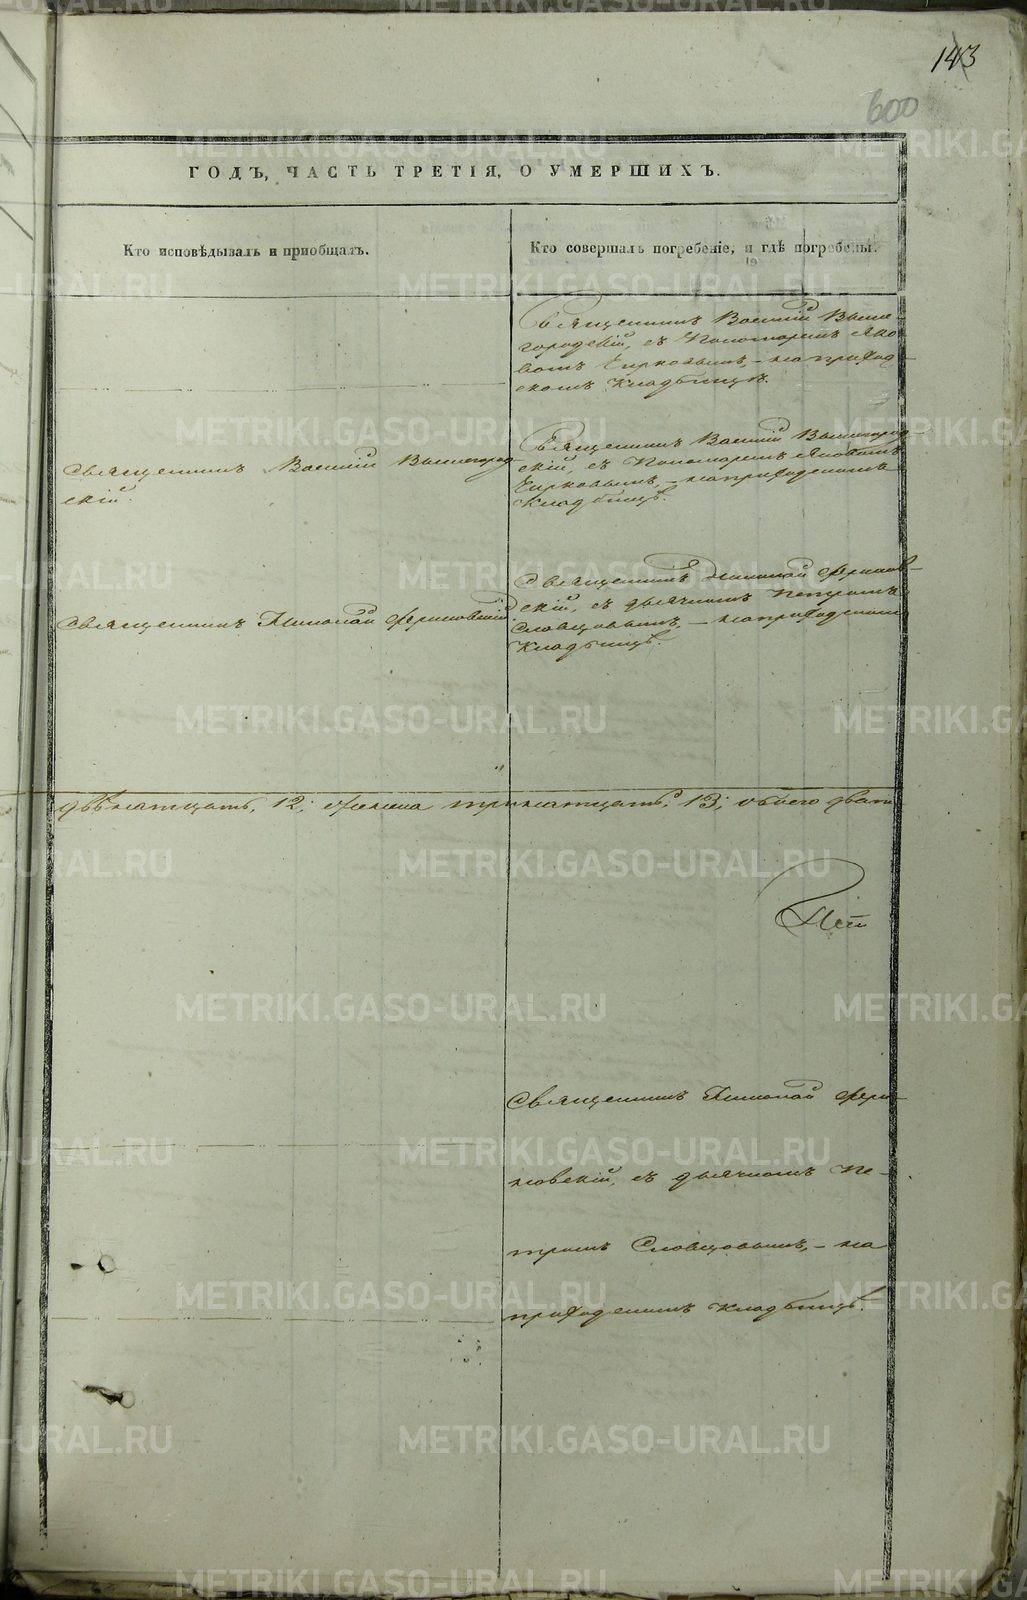 143
600
ГОДЪ, ЧАСТЬ ТРЕТІЯ, О УМЕРШИХЪ.
Кто исповѣдывалъ и пріобщалъ.
Кто совершалъ погребеніе, и гдѣ погребены.
Священникъ Василій Выше-
городскій, съ Пономаремъ Яко-
вомъ Чирковымъ, – на приход-
скомъ кладбищѣ.
Священникъ Василій Вышегород-
скій.
Священникъ Василій Вышегород-
скій, съ Пономаремъ Яковомъ
Чирковымъ, – на приходскомъ
кладбищѣ.
Священникъ Николай
Священникъ Николай
скій, съ дьячкомъ Петромъ
Словцовымъ, – на приходскомъ
кладбищѣ.
двѣнатцать, 12; женска тринатцать, 13; обоего дват
Священникъ Николай
новскій, съ дьячкомъ Пе-
тромъ Словцовымъ, – на
приходскомъ кладбищѣ.
METRIKI.GASO-URAL.RU